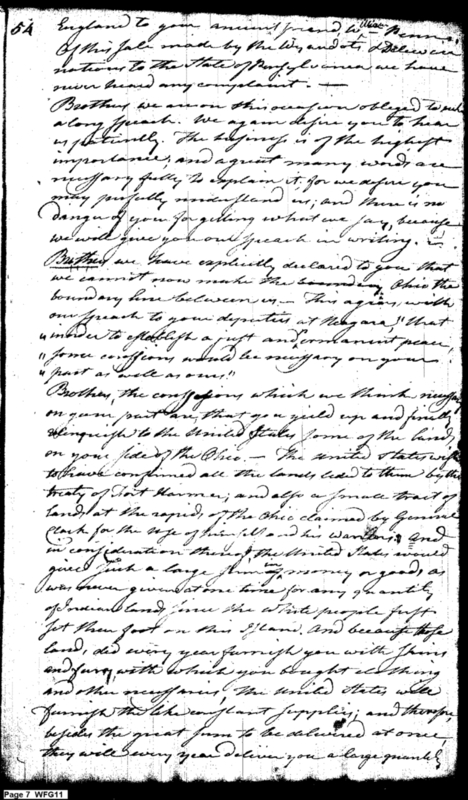 54
England to your ancient friend Wm Penn.
Of this sale made by the Wyandots & Delaware
nations to the State of Pensylvania we have
never heard any complaint. —
Brothers we are on this occasion obliged to make
a long speach. We again desire you to hear
us patiently. The business is of the highest
importance, and a great many words are
necessary fully to explain it. for we desire you
may perfectly understand us; and there is no
danger of your forgetting what we say, because
we will give you our speach in writing. —
Brothers we have explicitly declared to you that
we cannot now make the boundary Ohio the
boundary line between us — This agrees with
our speach to your deputies at Niagara, "that
" in order to establish a just and permanent peace,
" some concessions would be necessary on your
" part as well as ours."
Brothers, the concessions which we think necessary
on your part are, that you yield up and finally
relinquish to the United States some of the lands
on your side of the Ohio, — The United States wish
to have confirmed all the lands ceded to them by the
treaty of Fort Harmer; and also a small tract of
land, at the rapids of the Ohio claimed by General
Clark for the use of himself and his warriors. And
in consideration thereof the United States would
give such a large sum in money or goods, as
was never given at one time for any quantity
of Indian land since the white people first
set their foot on this Island. And because those
lands did every year furnish you with skins
and furs, with which you bought clothing
and other necessaries, the United States will
furnish the like constant supplies; and therefore,
besides the great sum to be delivered at once
they will every year deliver you a large quantity
Page 7 WFG11